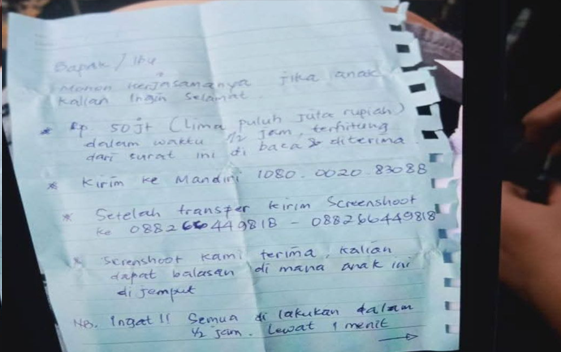 Bapak / Ibu
Mohon kerjasamanya jika anak
kalian Ingin Selamat.
* Rp 50 jt (Lima puluh juta rupiah)
dalam waktu 1/2 jam, terhitung
dari surat ini di baca & diterima.
* Kirim ke Mandiri 1080.0020.83088
* Setelah transfer kirim Screenshoot
ke 088266449818 - 088266449818
* Screnshoot kami terima, kalian
dapat balasan di mana anak ini
di jemput
NB. Ingat!! Semua di lakukan dalam
1/2 jam. Lewat 1 menit
→